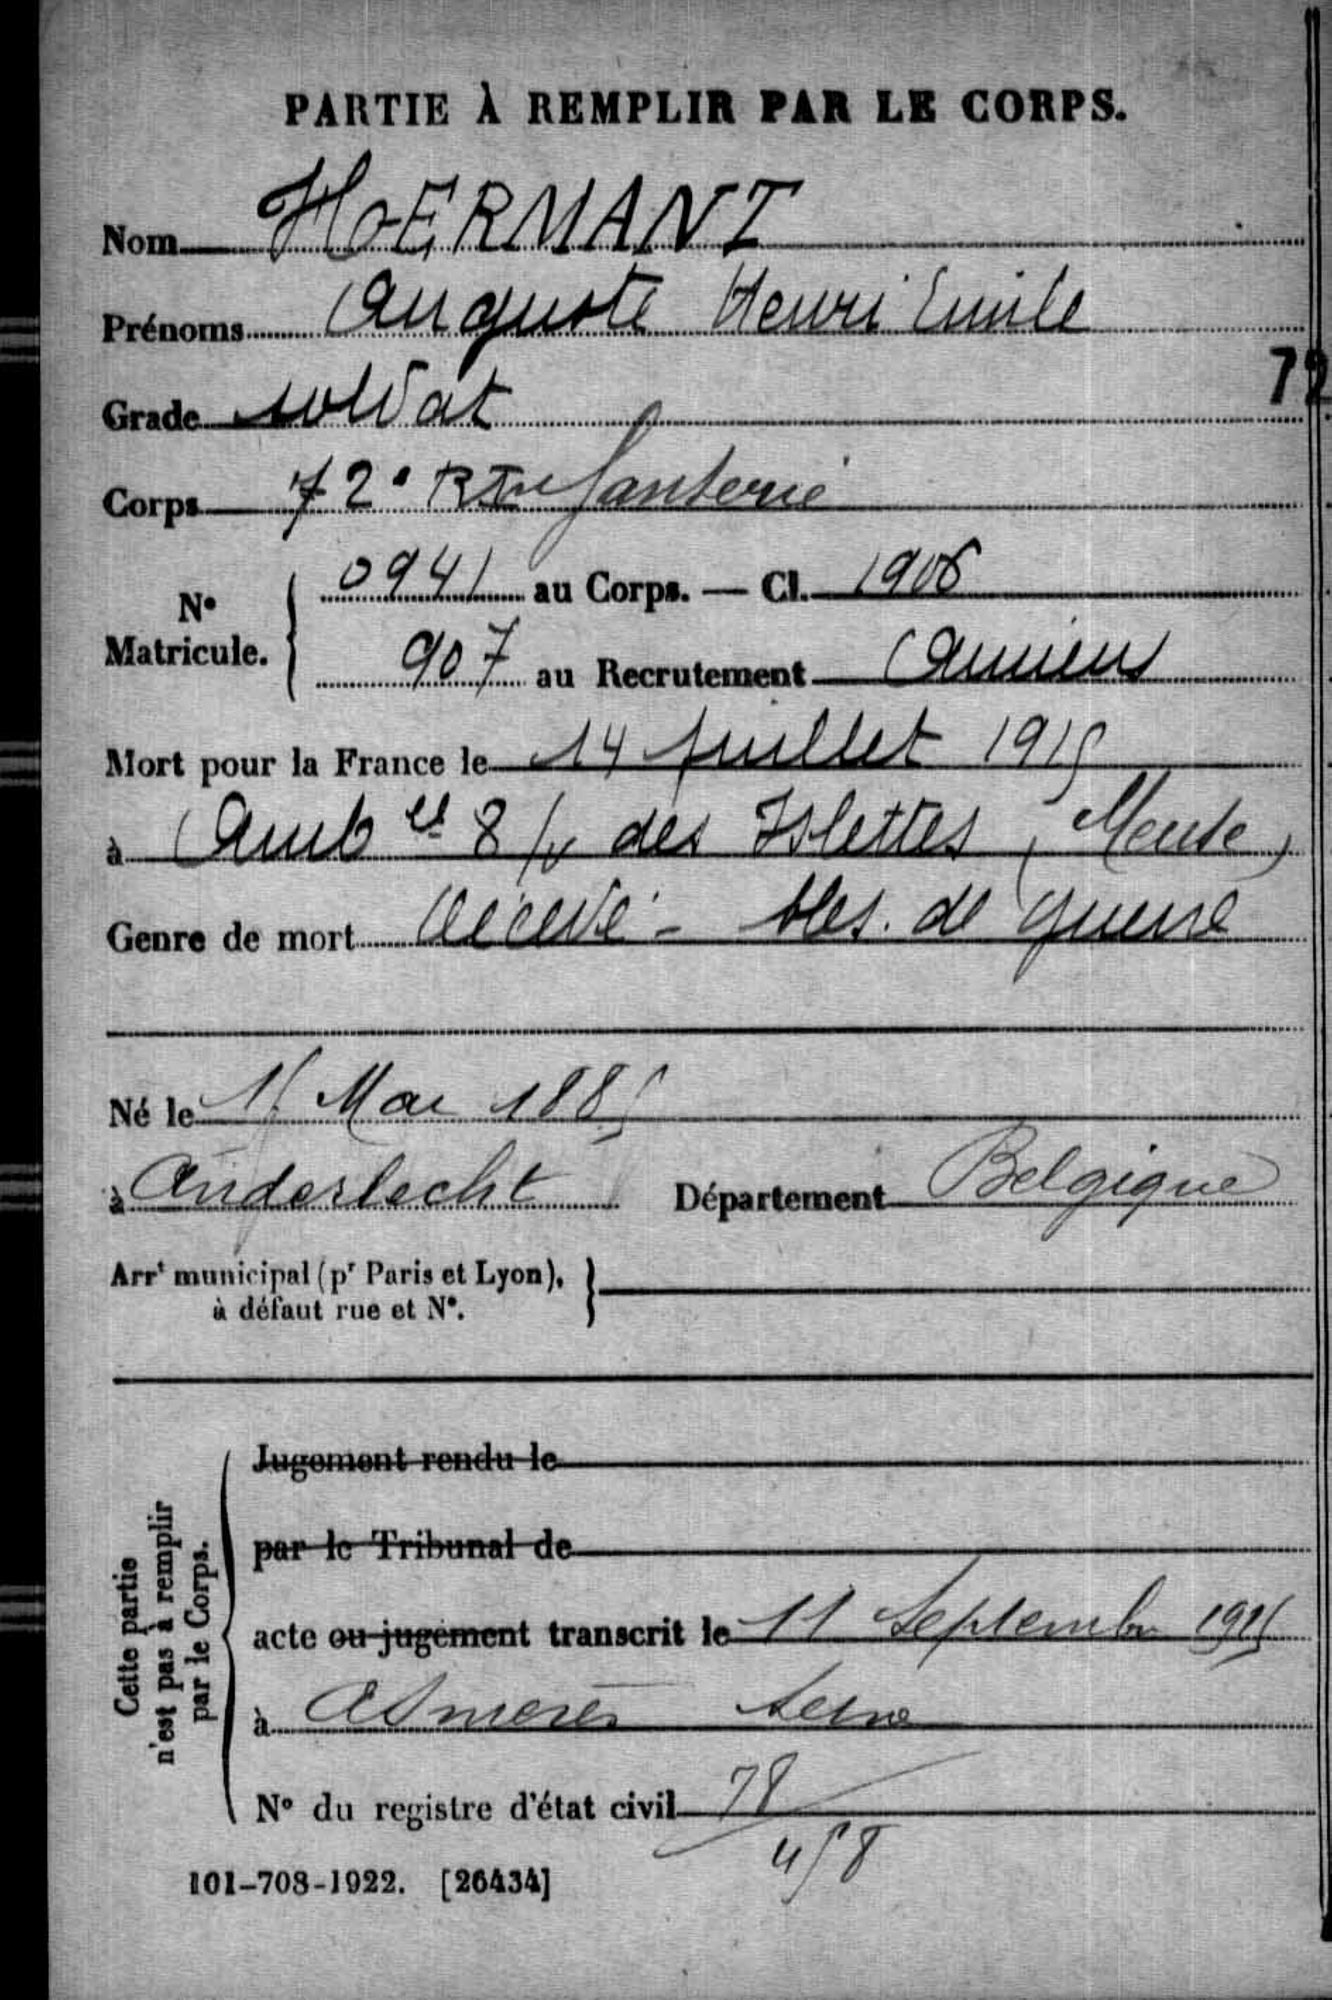 PARTIE À REMPLIR PAR LE CORPS.
Nom HOERMANT
Prénoms Auguste Henri Emile
Grade soldat
72
Corps 72e RInfanterie
N° Matricule. 0941 au Corps. — Cl. 1906
907 au Recrutement Amiens
Mort pour la France le 14 Juillet 1915
à Amb ce 8/ des Islettes (Meuse)
Genre de mort décédé - bles. de guerre
Né le 15 Mai 1885
à Anderlecht Département Belgique
Arrt municipal (pr Paris et Lyon),
à défaut rue et N°.
Cette partie n'est pas à remplir par le Corps.
Jugement rendu le
par le Tribunal de
acte ou jugement transcrit le 11 Septembre 1915
à Asnières Seine
N° du registre d'état civil 78
458
101-708-1922. [26434]